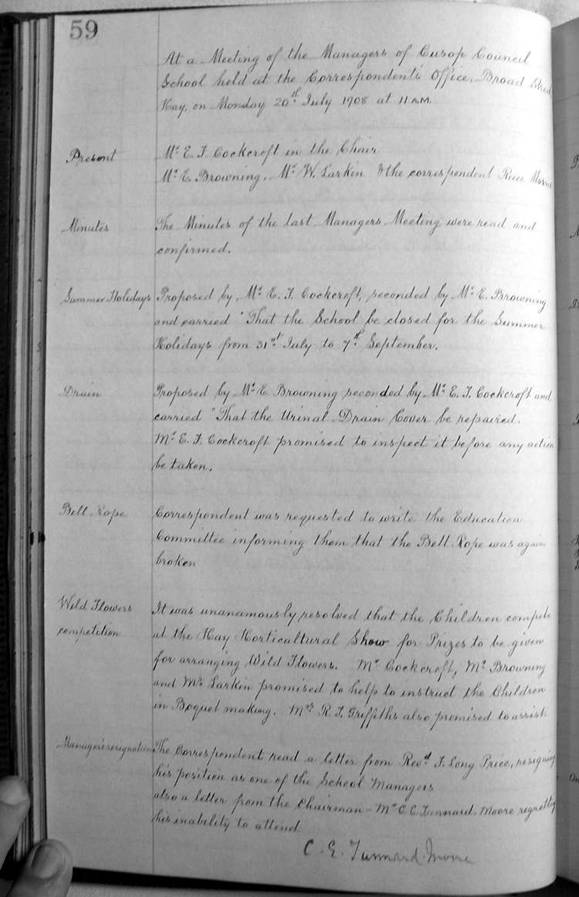 59
At a Meeting of the Managers of Cusop Council
School held at the Correspondents Office, Broad Street
Hay, on Monday 20th July 1908 at 11 A.M.
Present
Mr E. F. Cockcroft in the Chair
Mr E. Browning. Mr W. Larkin & the correspondent Rice
Minutes
The Minutes of the last Managers Meeting were read and
confirmed.
Summer Holidays
Proposed by Mr E. F. Cockcroft, seconded by Mr E. Browning
and carried "That the School be closed for the Summer
Holidays from 31st July to 7th September.
Drain
Proposed by Mr E Browning seconded by Mr E. F. Cockcroft and
carried "That the Urinal Drain Cover be repaired.
Mr E. F. Cockcroft promised to inspect it before any action
be taken.
Bell Rope
Correspondent was requested to write the Education
Committee informing them that the Bell Rope was again
broken
Wild Flowers
competition
It was unanamously resolved that the Children compete
at the Hay Horticultural Show for Prizes to be given
for arranging Wild Flowers. Mr Cockcroft, Mr Browning
and Mr Larkin promised to help to instruct the Children
in Boquet making. Mrs R. T. Griffiths also promised to assist
Managers resignation
The Correspondent read a letter from Revd F. Long Price, resigning
his position as one of the School Managers
also a letter from the Chairman - Mr C. E. Tunnard Moore regretting
his inability to attend
C. E. Tunnard Moore